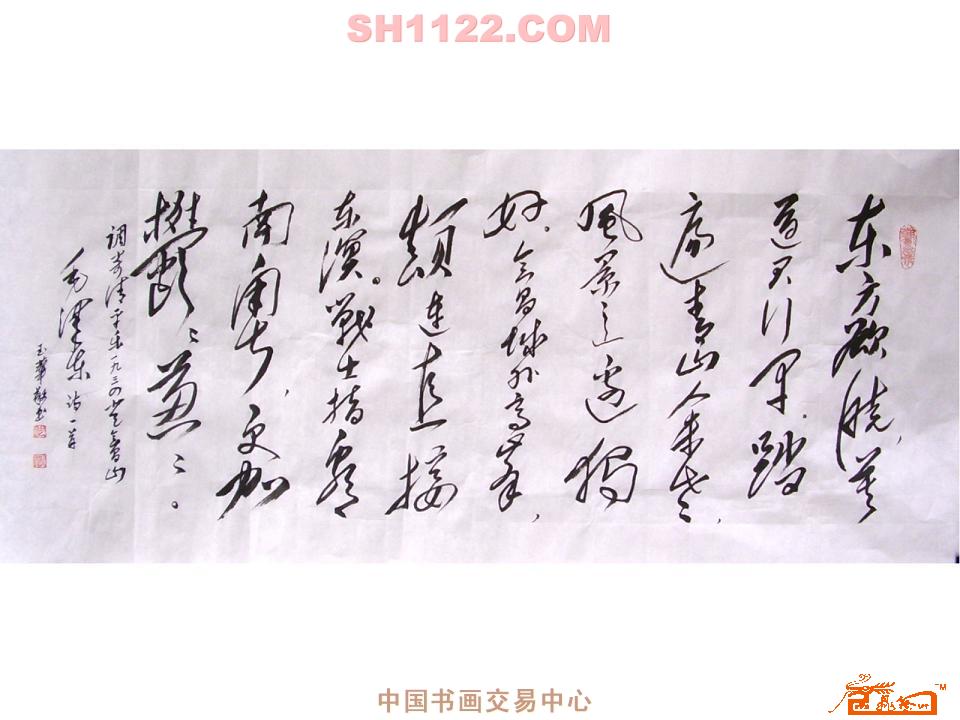 SH1122.COM
东方欲晓,莫
道君行早。踏
遍青山人未老,
風景这边独
好。会昌城外高峰,
颠连直接
东溟。戰士指看
南粤,更加
鬱〻葱〻。
调寄清平乐一九三四登会山
毛泽东诗一章
玉華敬书
中国书画交易中心
TM